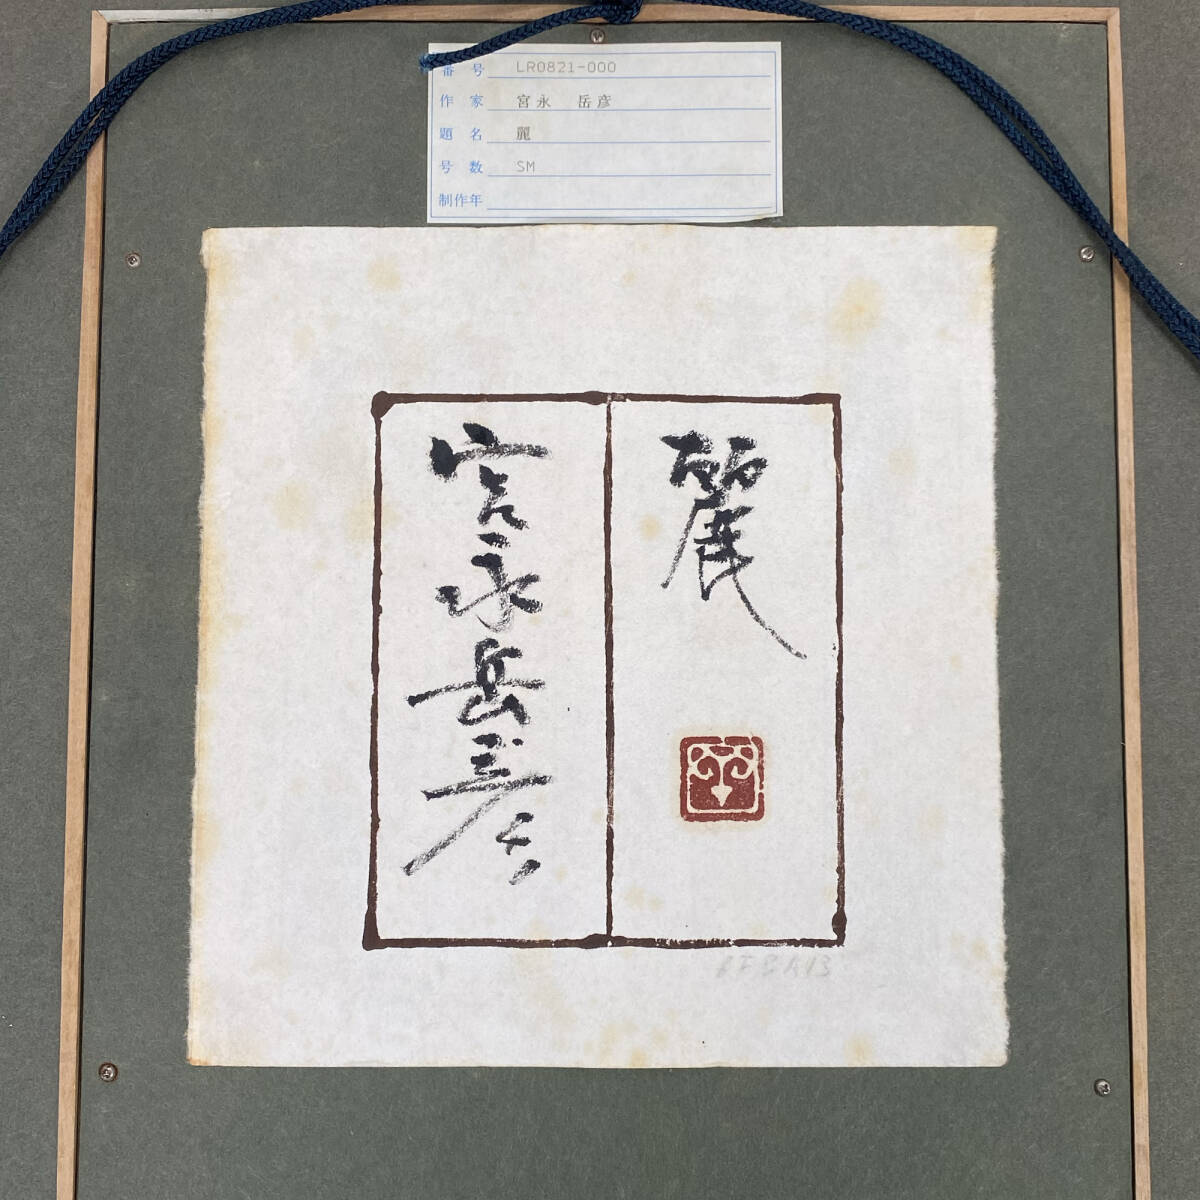 番号 LR0821-000
作家 宮永 岳彦
題名 麗
号数 SM
制作年
麗
宮永岳彦